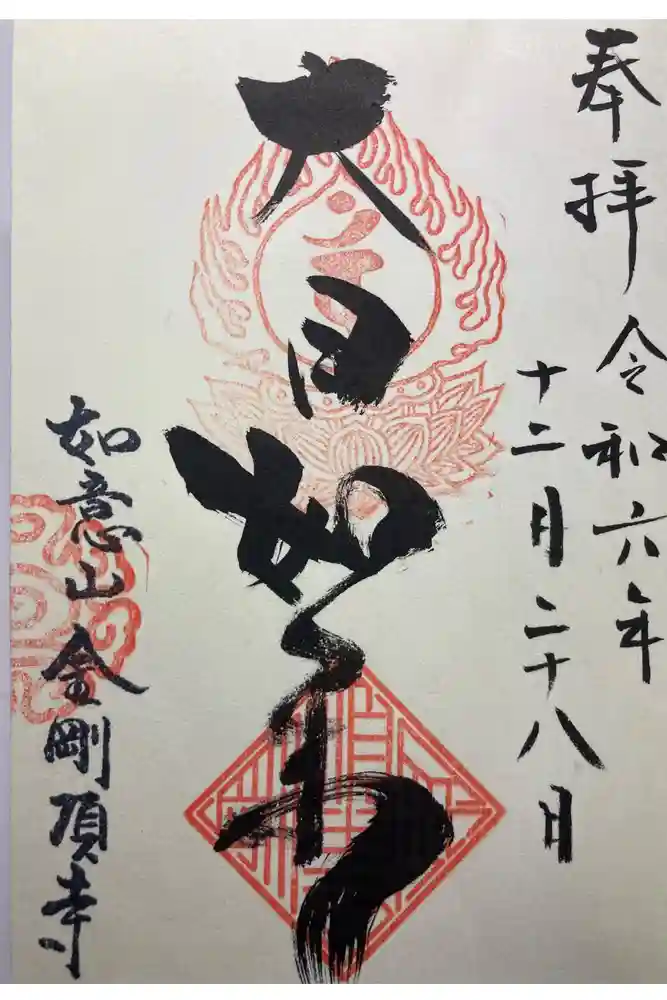 奉拝 令和六年
十二月二十八日
大日如来
如意山金剛頂寺